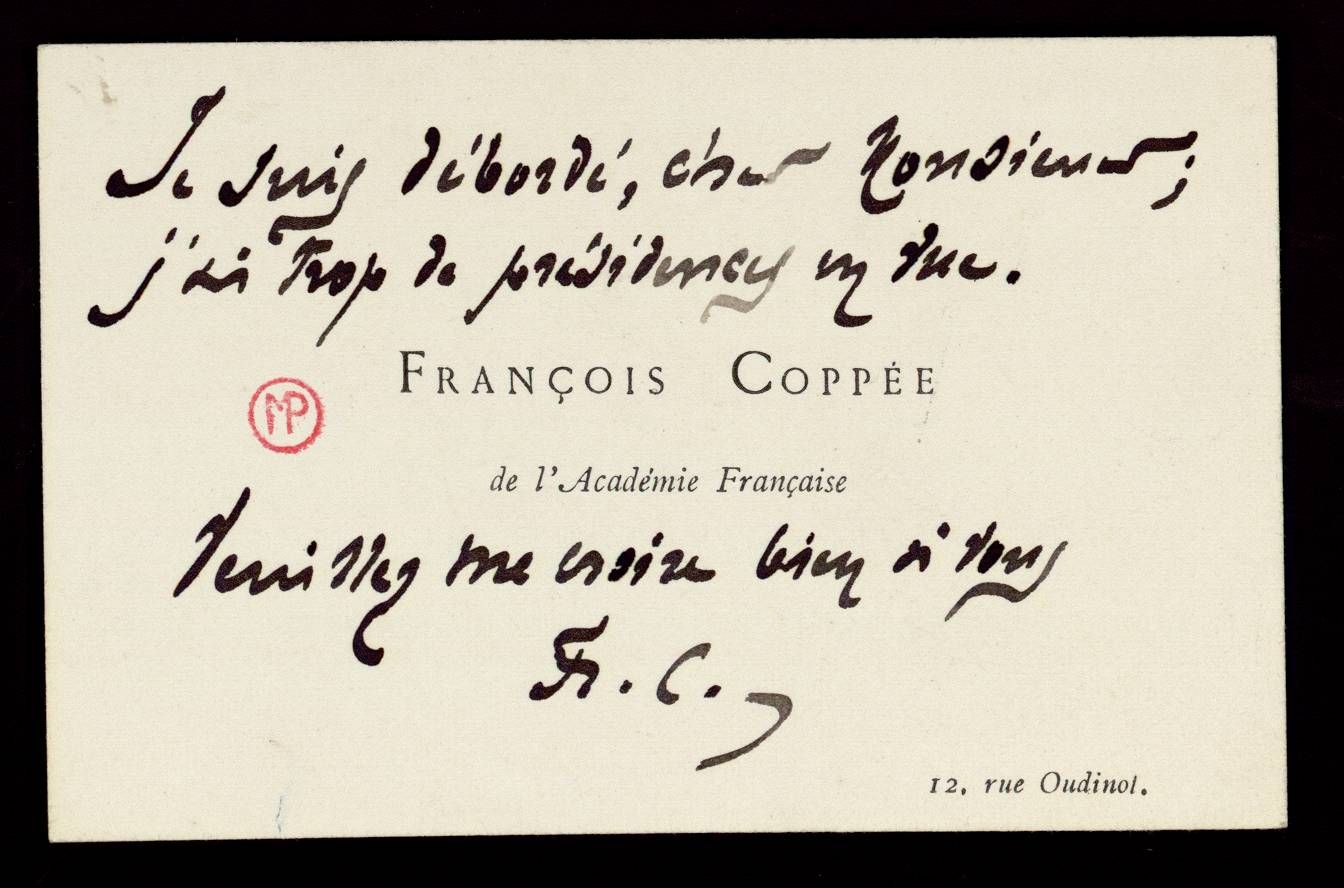 Je suis débordé, cher Monsieur ;
j'ai trop de présidences en vue.
FRANÇOIS COPPÉE
MP
de l'Académie Française
Veuillez me croire bien à vous
Fr. C.
12, rue Oudinot.